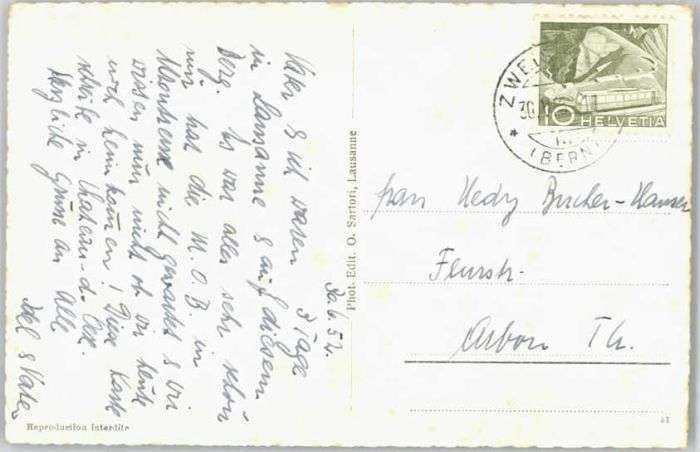 30.6.52.
Vater & ich waren 3 Tage
in Lausanne & auf diesem
Berg. Es war alles sehr schön
nur hat die M.O.B. in
Montreux nicht gewartet & wir
wissen nun nicht ob wir heute
noch heim kommen! Diese Karte
schreibe in Chateau-d. Oex.
Herzliche Grüsse an Alle
& Vater
Phot. Edit. O. Sartori, Lausanne
Reproduction Interdite
ZWEI
30
(BERN)
10 HELVETIA
Frau Hedy Bucher-Hauser
Feurstr.
Arbon Th.
41